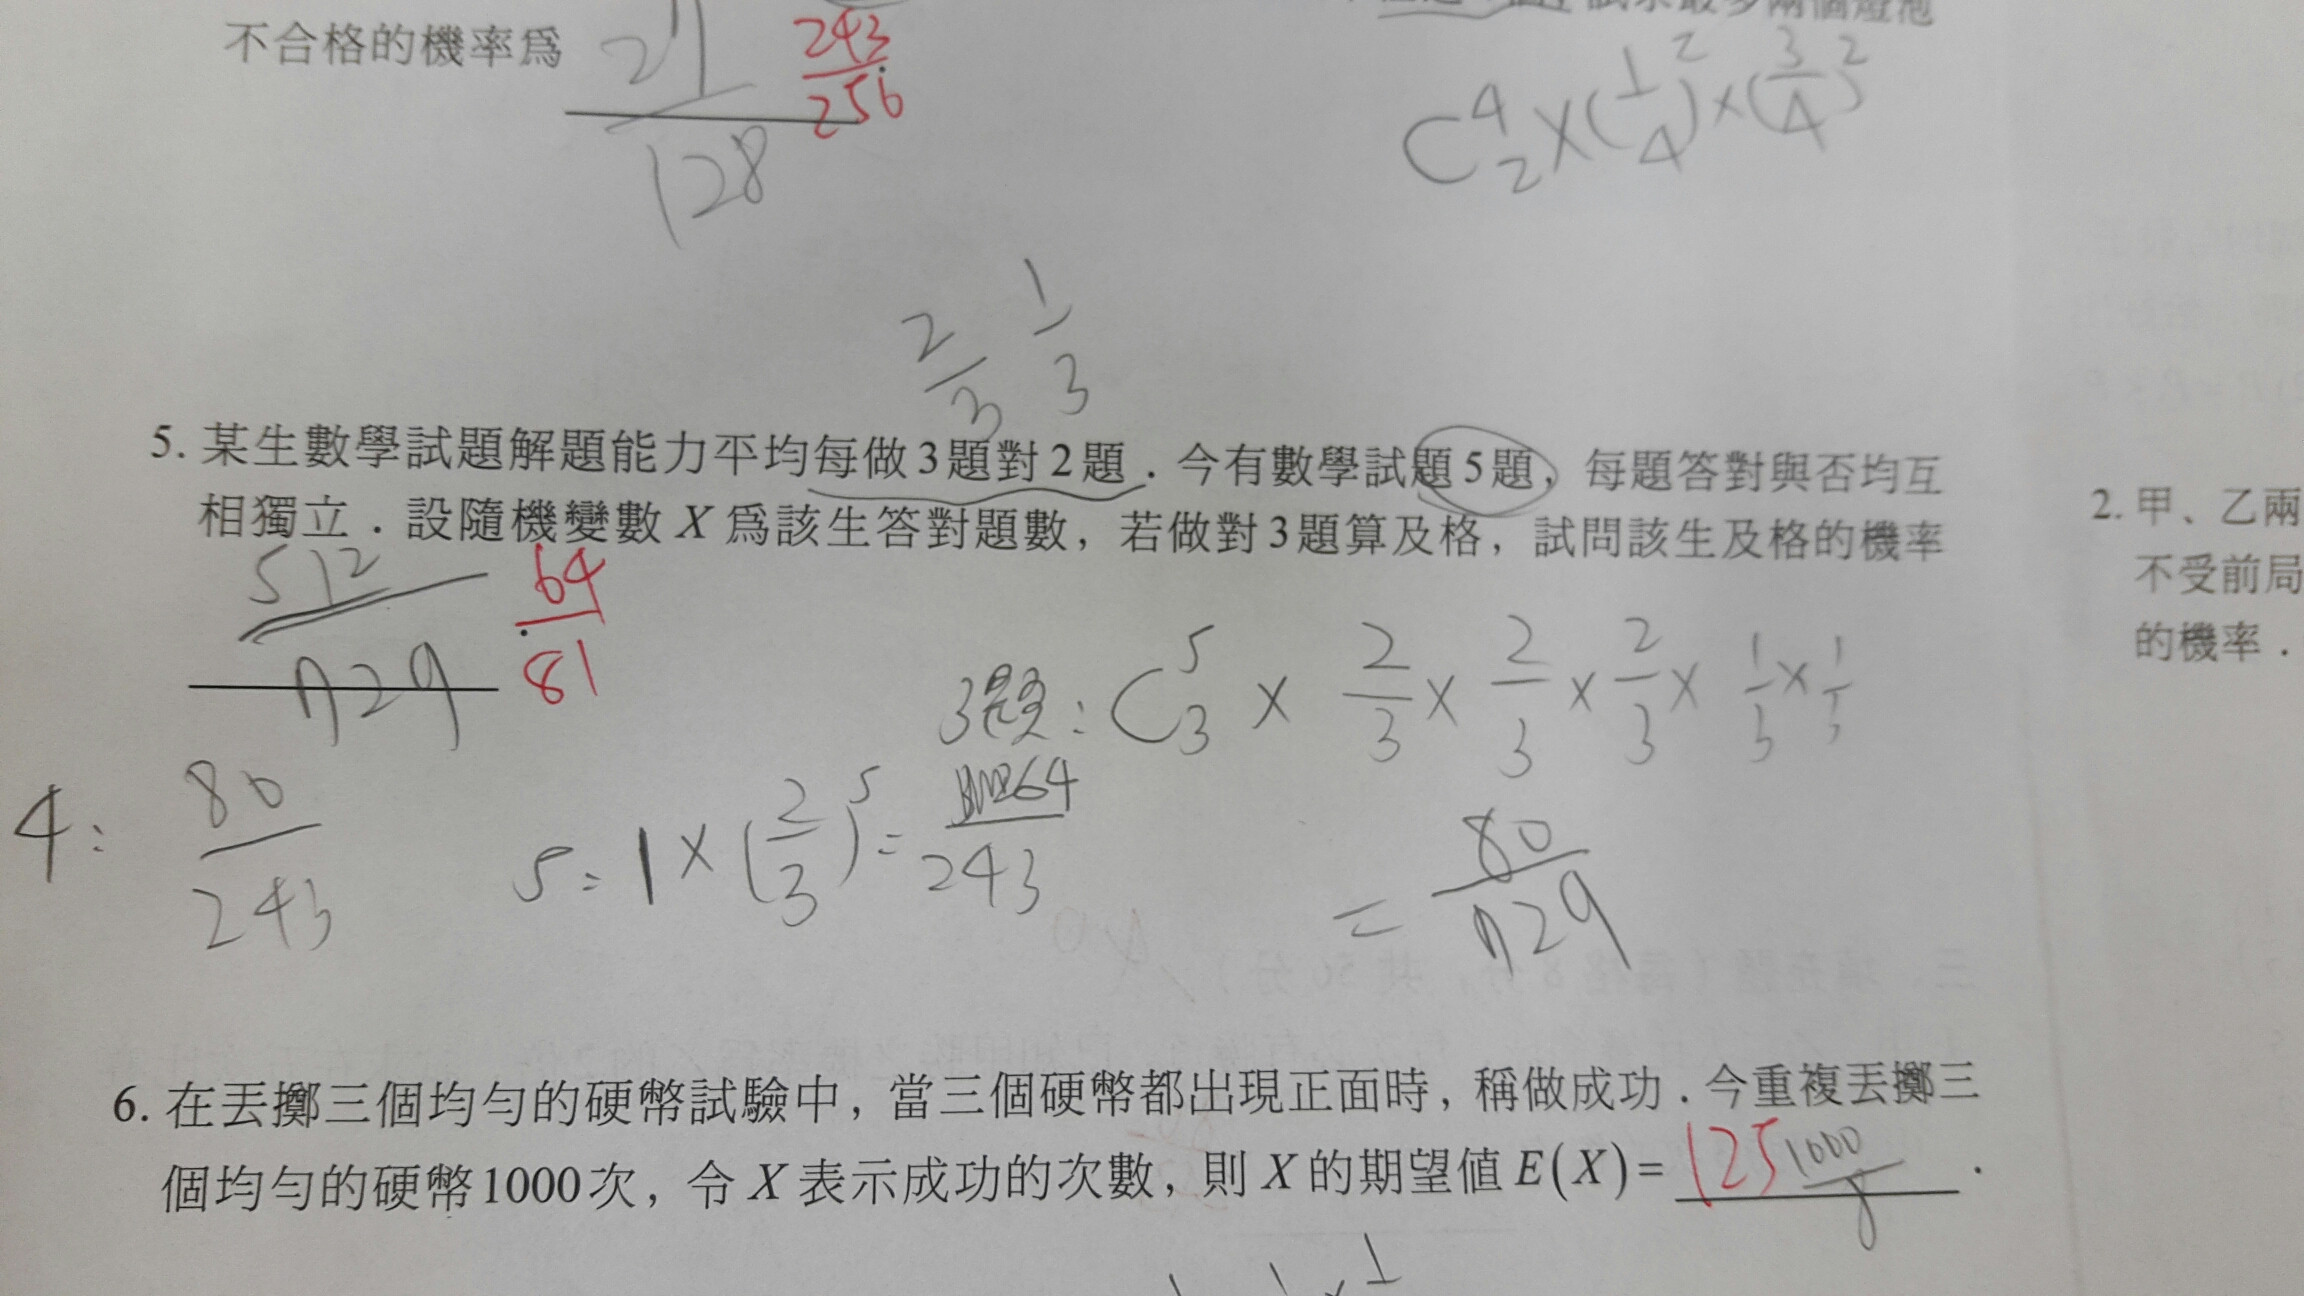 不合格的機率爲 21/128 243/256
C⁴₂×(1/4)²×(3/4)²
2/3 1/3
5. 某生數學試題解題能力平均每做3題對2題．今有數學試題5題，每題答對與否均互
相獨立．設隨機變數 X 爲該生答對題數，若做對3題算及格，試問該生及格的機率
512/729 64/81 .
3題：C⁵₃ × 2/3 × 2/3 × 2/3 × 1/3 × 1/3
= 80/729
4: 80/243
5: 1×(2/3)⁵ = 64/243
6. 在丟擲三個均勻的硬幣試驗中，當三個硬幣都出現正面時，稱做成功．今重複丟擲三
個均勻的硬幣1000次，令 X 表示成功的次數，則 X 的期望值 E(X)= 125 1000/8 ．
2. 甲、乙兩
不受前局
的機率．